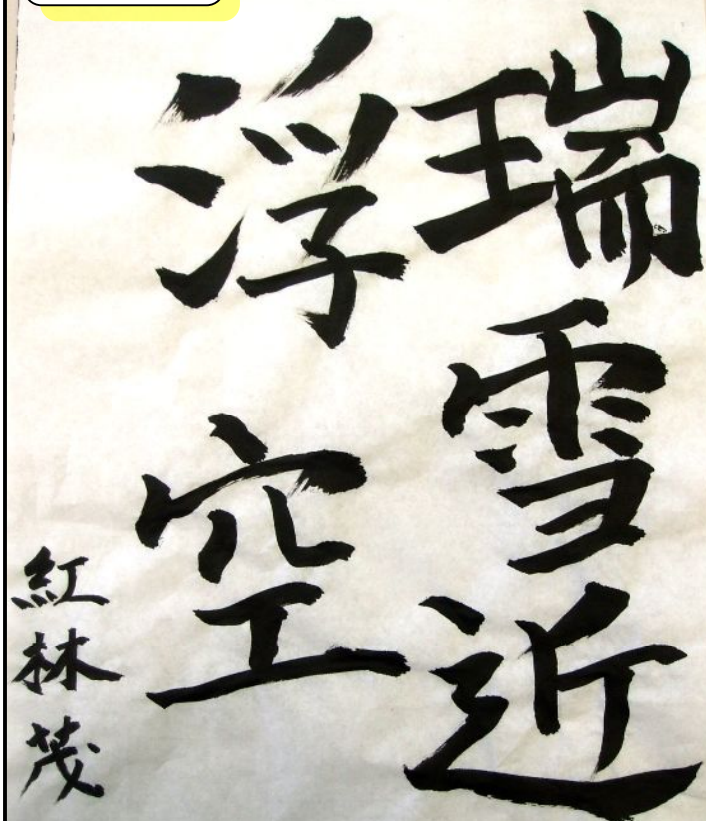 瑞雪近
浮空
紅林茂